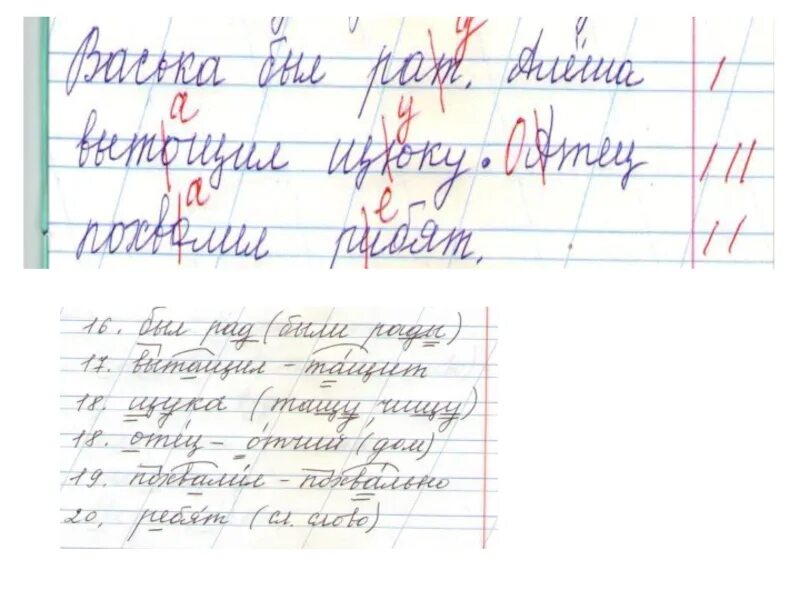 д
Васька был рат. Алёша |
а у
вытощил щюку. О Атец | ||
а е
похволил рибят. ||
16. был рад (были рады)
17. вытащил - тащит
18. щука (тащу, чищу)
18. отец - отчий (дом)
19. похвалил - похвально
20. ребят (сл. слово)